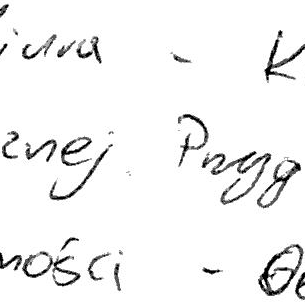 iura - K
znej Przyg
ności - Od